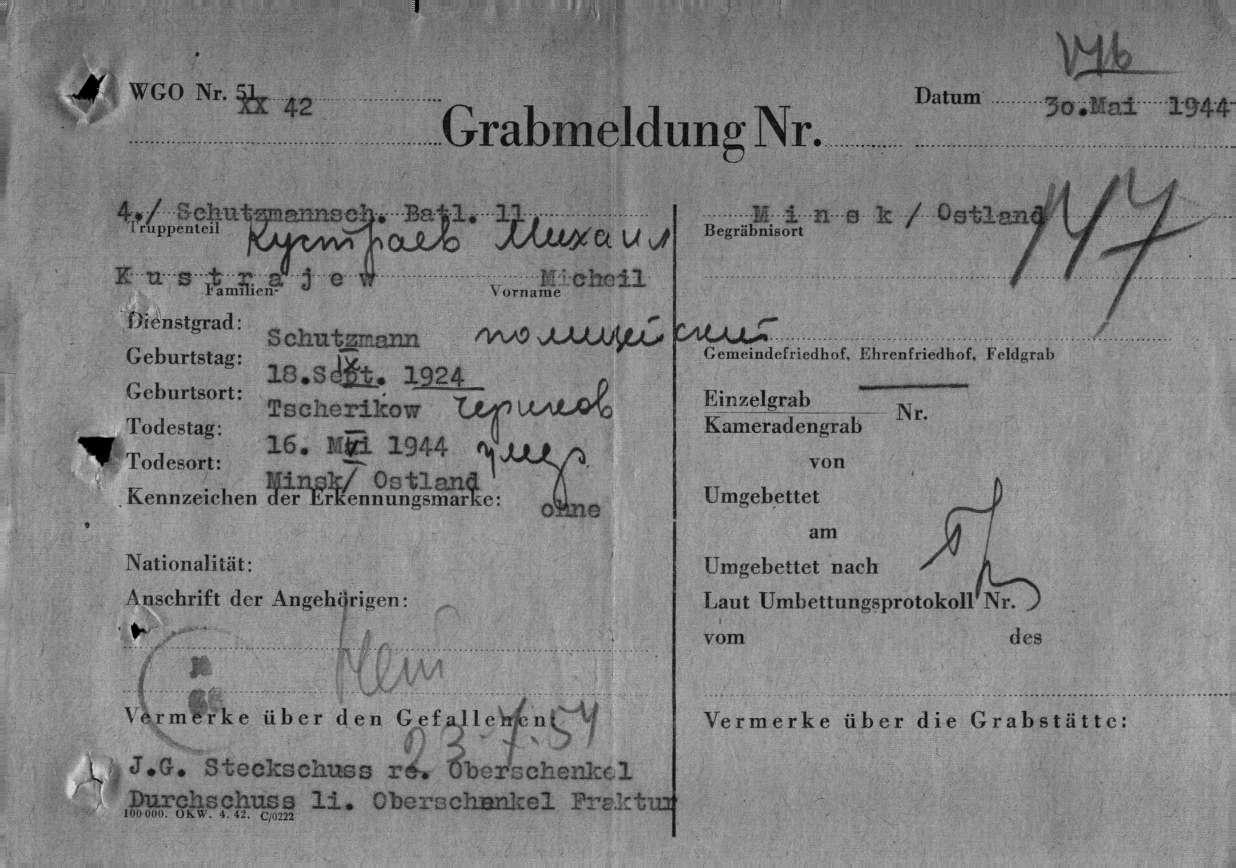 V4b
WGO Nr. 51
XX 42
Datum 30.Mai 1944
Grabmeldung Nr.
4./ Schutzmannsch. Batl. 11
Truppenteil
Кустраев Михаил
K u s t r a j e w Micheil
Familien- Vorname
Dienstgrad: Schutzmann полицейский
Geburtstag: 18.Sept. 1924 IX
Geburtsort: Tscherikow Чериков
Todestag: 16. Mai 1944 V
Todesort: Minsk/ Ostland умер
Kennzeichen der Erkennungsmarke: ohne
Nationalität:
Anschrift der Angehörigen:
Vermerke über den Gefallenen:
23.7.54
J.G. Steckschuss re. Oberschenkel
Durchschuss li. Oberschenkel Fraktur
100 000. OKW. 4. 42. C/0222
M i n s k / Ostland
Begräbnisort
Gemeindefriedhof, Ehrenfriedhof, Feldgrab
Einzelgrab
Nr.
Kameradengrab
von
Umgebettet
am
Umgebettet nach
Laut Umbettungsprotokoll Nr.
vom des
Vermerke über die Grabstätte: